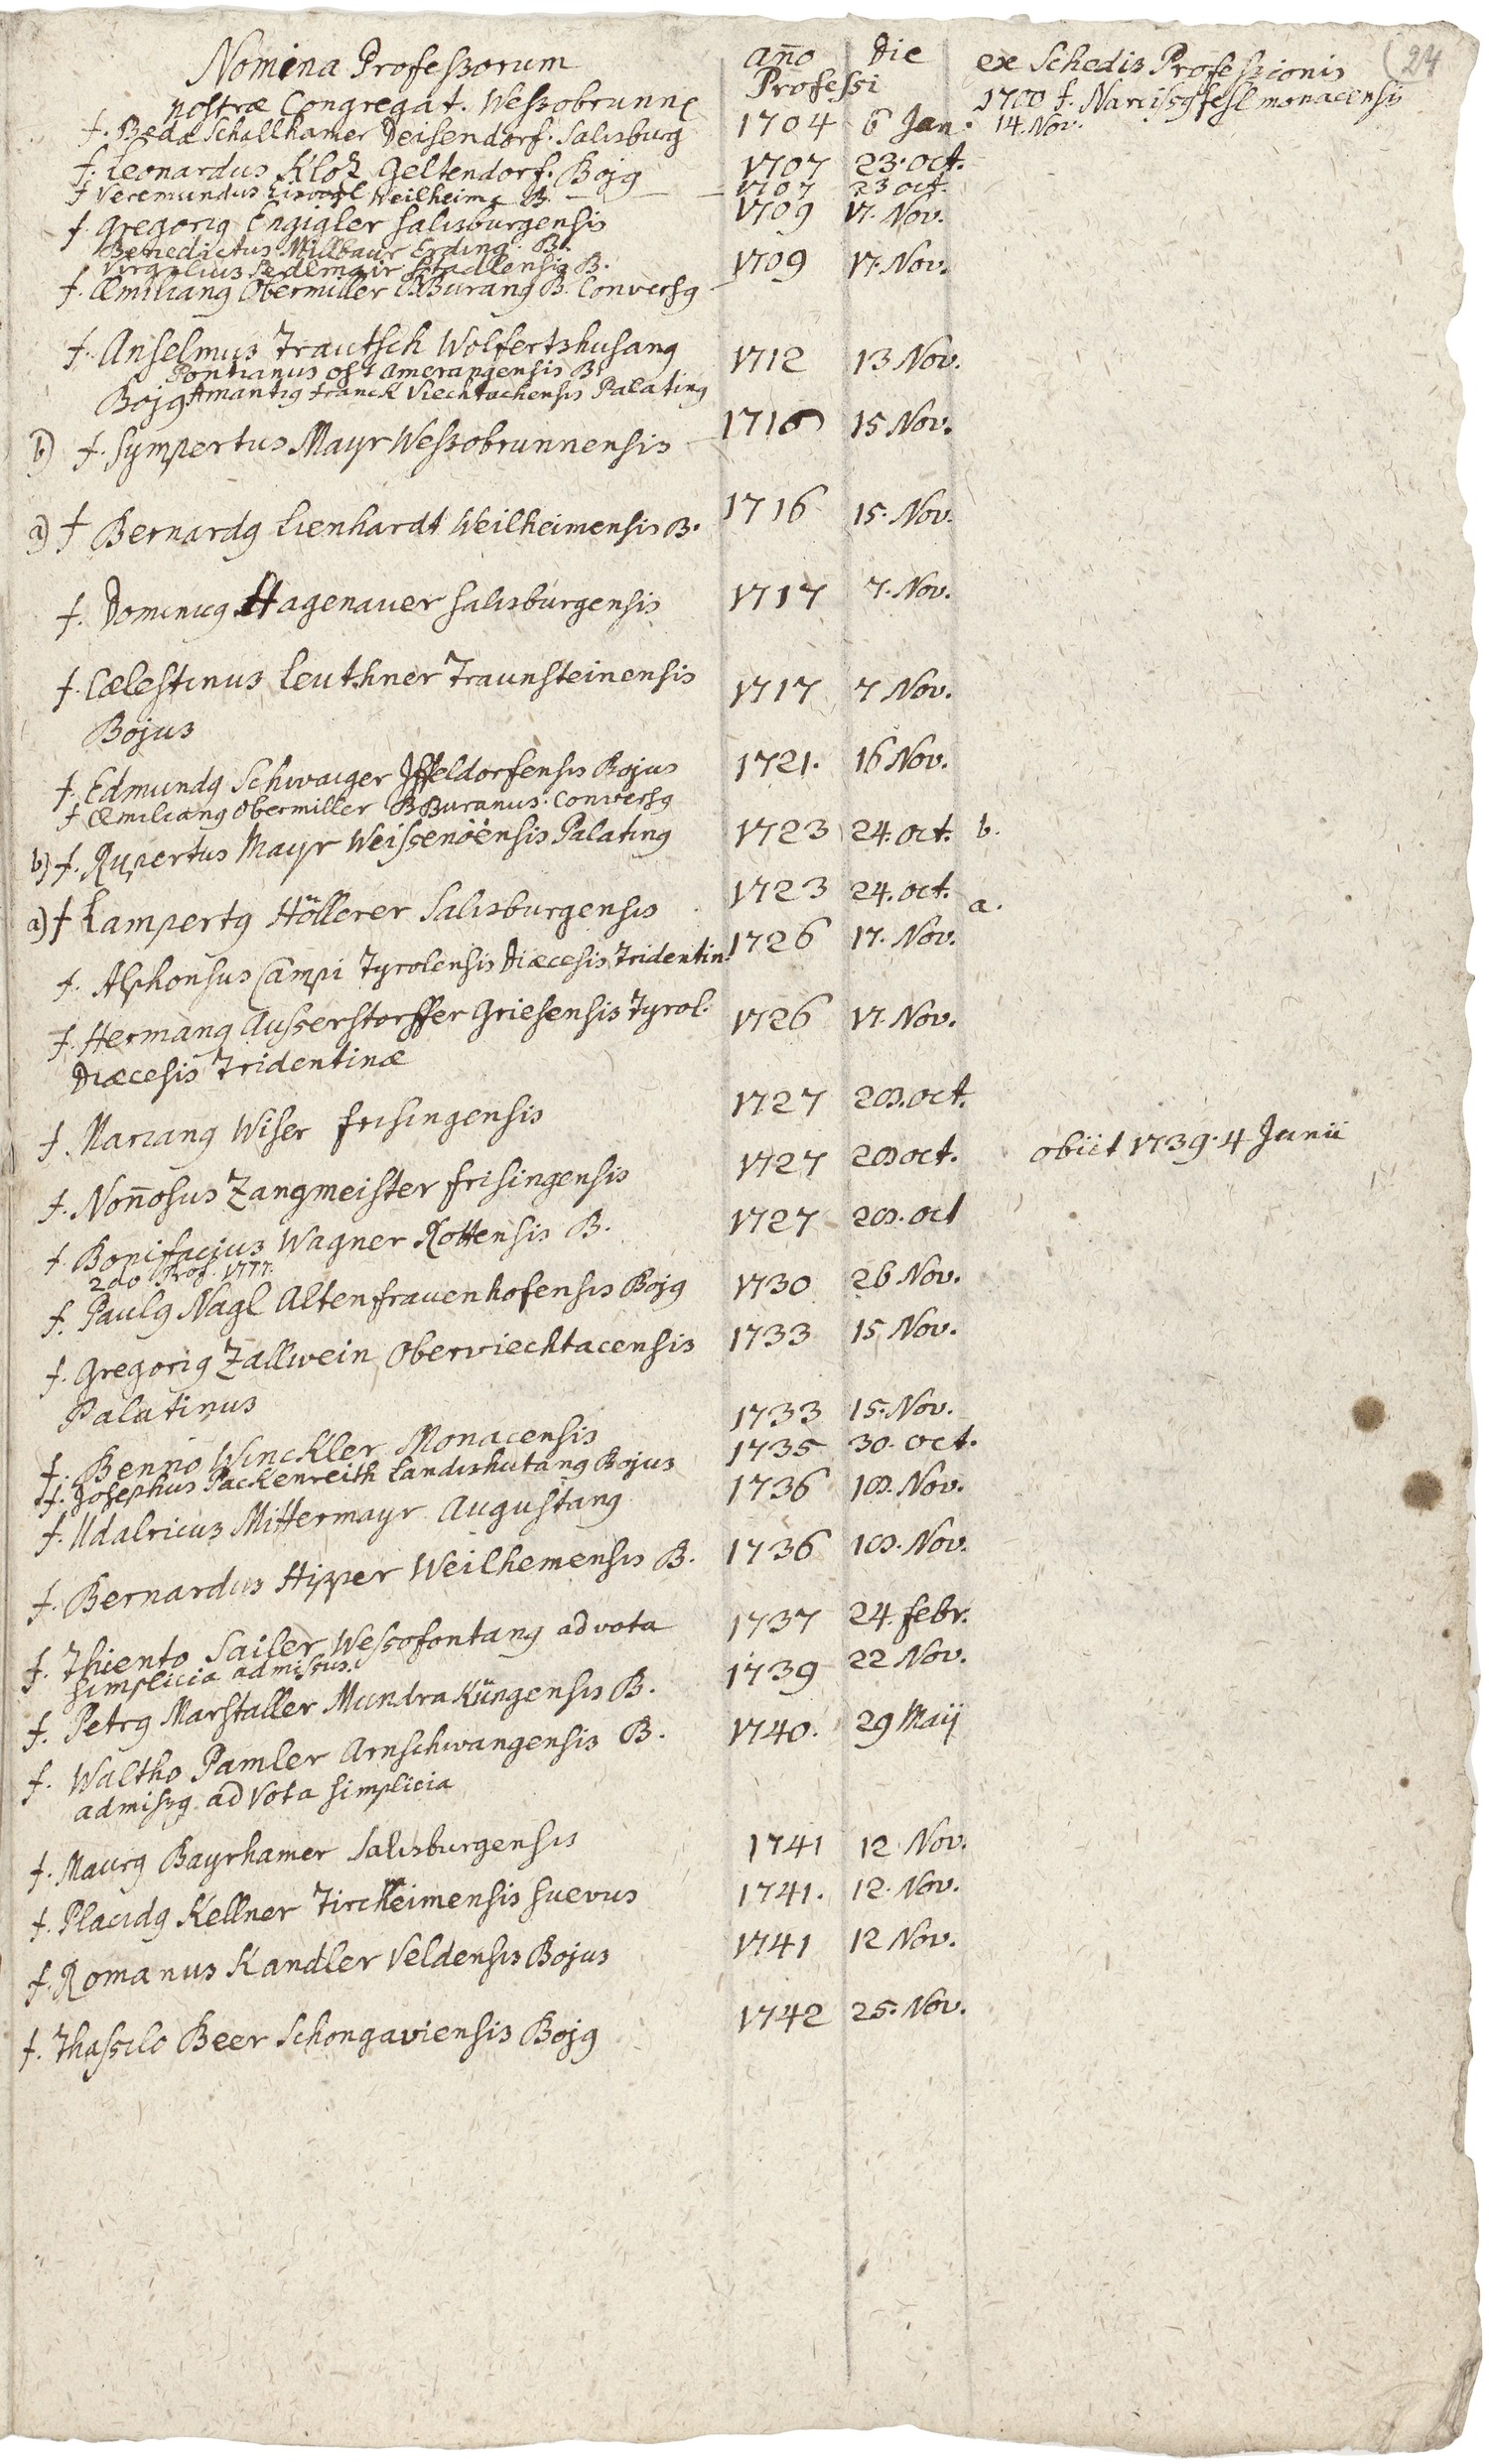 Nomina Professorum
Año Die
ex Schedis Professionis
24
nostræ Congregat. Wessobrunñ
Professi
1700 †. Narcissq fesl monacensis
†. Beda Schallhamer Deisendorf. Salisburg 1704 6 Jan. 14. Nov.
†. Leonardus Kloz Geltendorf. Bojq 1707 23. oct.
† Veremundus Weilheim. B. 1707 23 oct.
†. Gregoriq Engigler Salisburgensis 1709 17. Nov.
Benedictus Millbaur Erding. B.
Virgilius Sedlmair Stadlensis B. 1709 17. Nov.
†. Æmilianq Obermiller BBuranq B. Conversq
†. Anselmus Trautsch Wolfertshusanq 1712 13 Nov.
Pontianus ost Amerangensis B.
Bojq Amantiq Franck Viechtachensis Palatinq
b) †. Sympertus Mayr Wessobrunnensis 1716 15 Nov.
a) † Bernardq Lienhardt Weilheimensis B. 1716 15. Nov.
†. Dominicq Hagenauer Salisburgensis 1717 7. Nov.
†. Cælestinus Leuthner Traunsteinensis 1717 7 Nov.
Bojus
†. Edmundq Schwaiger Iffeldorfensis Bojus 1721. 16 Nov.
† Æmilianq Obermiller BBuranus. Conversq
b) †. Rupertus Mayr Weissenöensis Palatinq 1723 24. oct. b.
a) † Lampertq Höllerer Salisburgensis 1723 24. oct. a.
†. Alphonsus Campi Tyrolensis Diæcesis Tridentin. 1726 17. Nov.
†. Hermanq Ausserstorffer Griesensis Tyrol. 1726 17. Nov.
Diæcesis Tridentinæ
†. Marianq Wiser frisingensis 1727 28. oct.
†. Noñosus Zangmeister frisingensis 1727 28 oct. obiit 1739. 4 Junii
†. Bonifacius Wagner Rottensis B. 1727 28. oct
2do Prof. 1777.
†. Paulq Nagl Altenfrauenhofensis Bojq 1730 26 Nov.
†. Gregoriq Zallwein Oberviechtacensis 1733 15 Nov.
Palatinus
†. Benno Winckler Monacensis 1733 15. Nov.
†. Josephus Packenreith Landishutanq Bojus 1735 30. oct.
†. Udalricus Mittermayr Augustanq 1736 18. Nov.
†. Bernardus Hipper Weilhemensis B. 1736 18. Nov.
†. Thiento Sailer Wessofontanq ad vota 1737 24. febr.
simplicia admissus.
†. Petrq Marstaller Mundraküngensis B. 1739 22 Nov.
†. Waltho Pamler Arnschwangensis B. 1740. 29 Maij
admissq ad Vota simplicia
†. Maurq Bayrhamer Salisburgensis 1741 12 Nov.
†. Placidq Kellner Tirckheimensis Suevus 1741. 12. Nov.
†. Romanus Kandler Veldensis Bojus 1741 12 Nov.
†. Thassilo Beer Schongaviensis Bojq 1742 25. Nov.